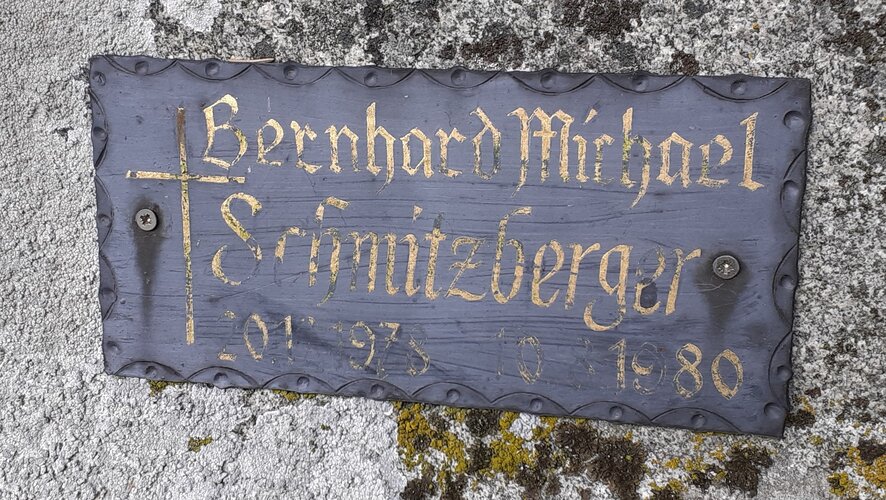 Bernhard Michael
Schmitzberger
1978 10 1980